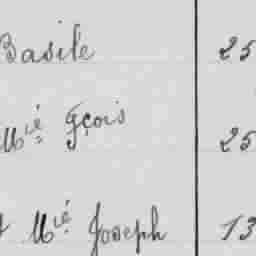 Basile 25
Mié Gçois 25
Mié Joseph 13